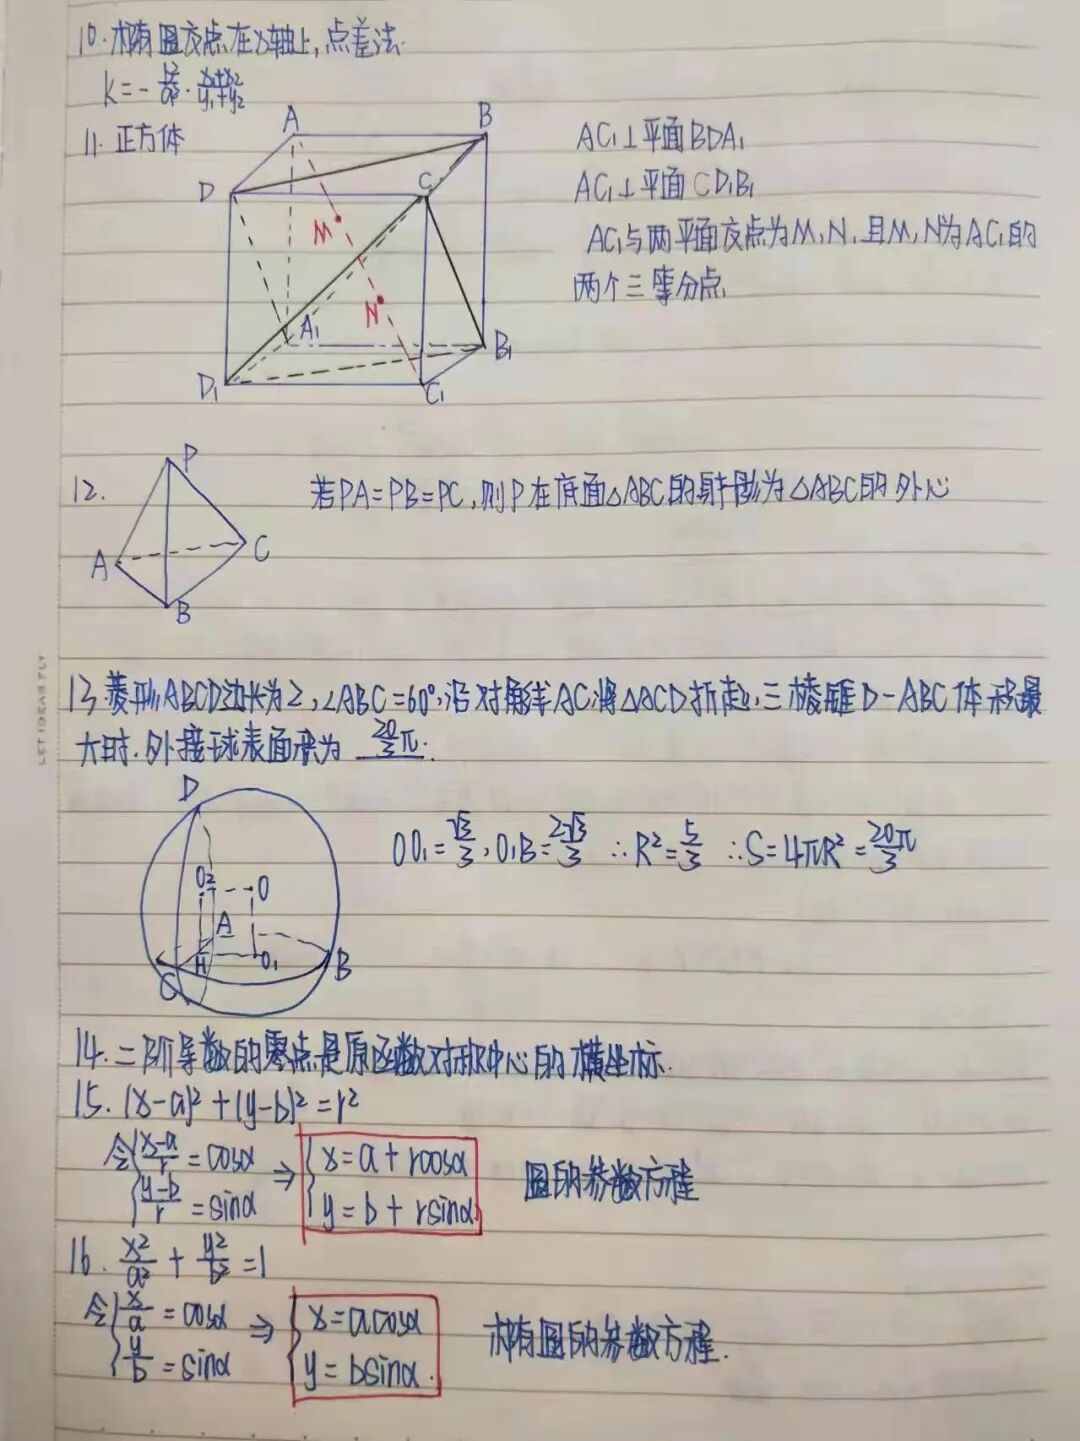 10.椭圆交点在x轴上,点差法.
K=-b²/a²·x₁+x₂/y₁+y₂
11.正方体
A B
D C
M
N
A₁ B₁
D₁ C₁
AC₁⊥平面BDA₁
AC₁⊥平面CD₁B₁
AC₁与两平面交点为M,N,且M,N为AC₁的
两个三等分点
12.
P
A C
B
若PA=PB=PC,则P在底面△ABC的射影为△ABC的外心
13.菱形ABCD边长为2,∠ABC=60°,沿对角线AC将△ACD折起,三棱锥D-ABC体积最
大时.外接球表面积为 20/3π.
D
O₂ O
A
H O₁ B
C
OO₁=√3/3,O₁B=2√3/3 ∴R²=5/3 ∴S=4πR²=20π/3
14.二阶导数的零点是原函数对称中心的横坐标.
15.(x-a)²+(y-b)²=r²
令{x-a/r=cosα ⇒ {x=a+rcosα 圆的参数方程
{y-b/r=sinα {y=b+rsinα
16.x²/a²+y²/b²=1
令{x/a=cosα ⇒ {x=acosα 椭圆的参数方程.
{y/b=sinα {y=bsinα.
LET IDEAS FLY